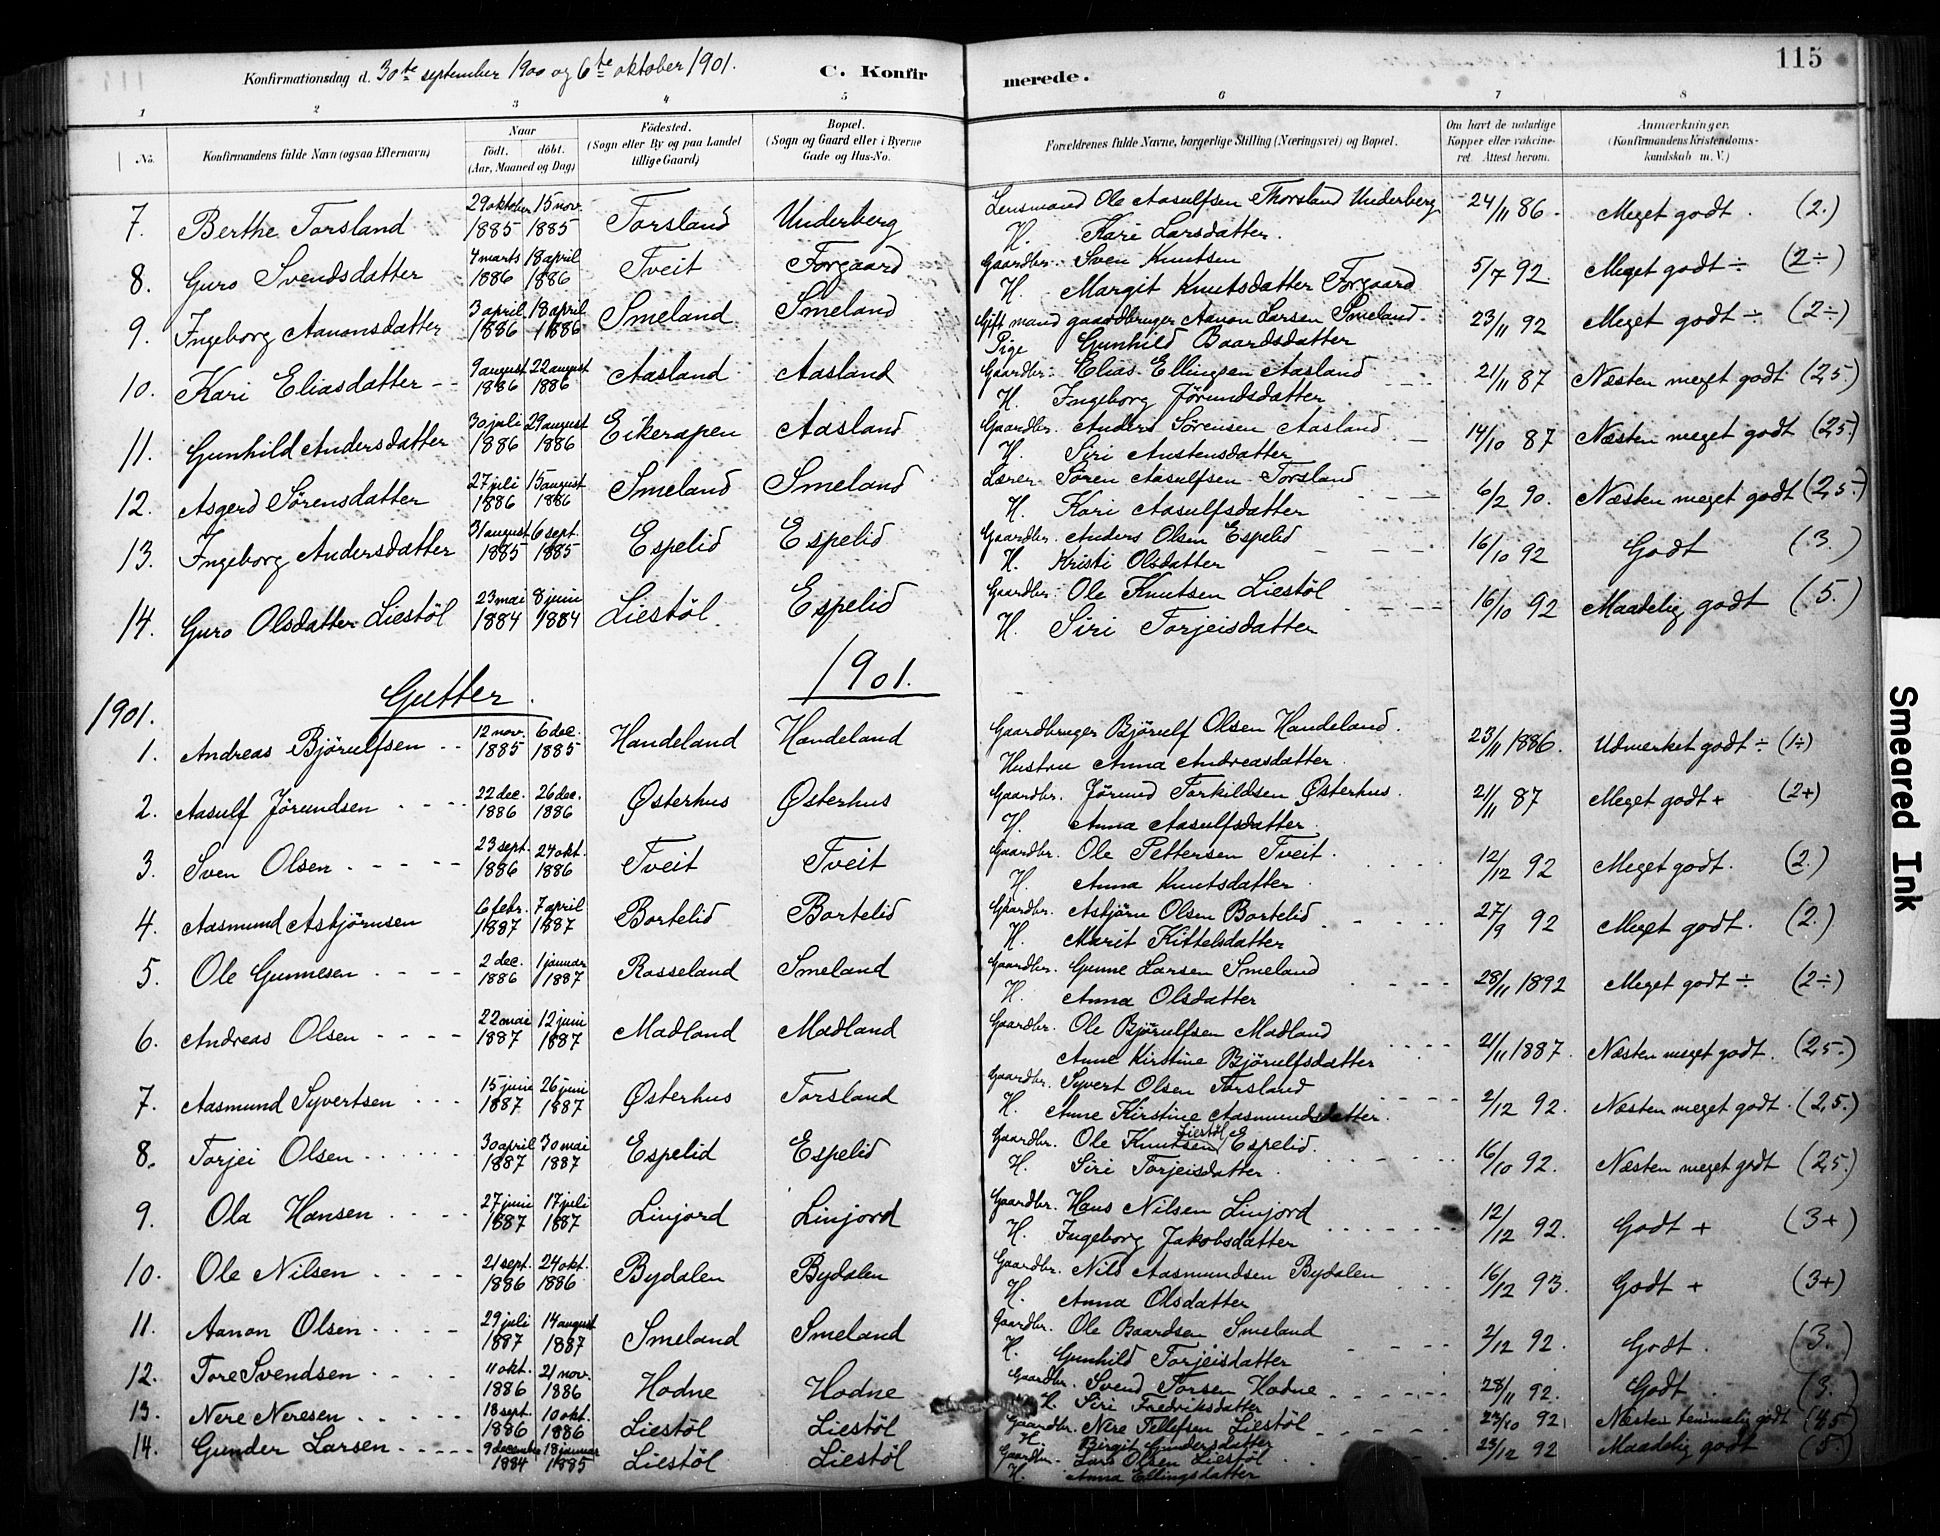 115
Konfirmationsdag d. 30te september 1900 og 6te oktober 1901. C. Konfirmerede.
1 2 3 4 5 6 7 8
No. Konfirmandens fulde Navn (ogsaa Efternavn) Naar født. døbt. (Aar, Maaned og Dag) Fødested. (Sogn eller By og paa Landet tillige Gaard) Bopæl. (Sogn og Gaard eller i Byerne Gade og Hus-No. Forældrenes fulde Navne, borgerlige Stilling (Næringsvei) og Bopæl. Om havt de naturlige Kopper eller vakcineret. Attest herom. Anmærkninger. (Konfirmandens Kristendomskundskab m. V.)
7. Berthe Torsland 29 oktober 1885 15 nov. 1885 Torsland Underberg Lensmand Ole Aasulfsen Thorsland Underberg 24/11 86. Meget godt. (2.)
H. Kari Larsdatter.
8. Guro Svendsdatter 4 marts 1886 18 april 1886 Tveit Forgaard Gaardbr. Sven Knutsen 5/7 92 Meget godt ÷ (2÷)
H. Margit Knutsdatter Forgaard
9. Ingeborg Aanonsdatter 3 april 1886 18 april 1886 Smeland Smeland Gift mand gaardbruger Aanon Larsen Smeland. 23/11 92 Meget godt ÷ (2÷)
Pige Gunhild Baardsdatter
10. Kari Eliasdatter 9 august 1886 22 august 1886 Aasland Aasland Gaardbr. Elias Ellingsen Aasland 21/11 87 Næsten meget godt (2,5.)
H. Ingeborg Jørundsdatter
11. Gunhild Andersdatter 30 juli 1886 29 august 1886 Eikerapen Aasland Gaardbr. Anders Sørensen Aasland 14/10 87 Næsten meget godt (2,5.)
H. Siri Austensdatter
12. Asgerd Sørensdatter 27 juli 1886 15 august 1886 Smeland Smeland Lærer Søren Aasulfsen Torsland 6/2 90. Næsten meget godt (2,5.)
H. Kari Aasulfsdatter
13. Ingeborg Andersdatter 31 august 1885 6 sept. 1885 Espelid Espelid Gaardbr. Anders Olsen Espelid 16/10 92 Godt (3.)
H. Kristi Olsdatter
14. Guro Olsdatter Liestöl 23 mai 1884 8 juni 1884 Liestöl. Espelid Gaardbr. Ole Knutsen Liestöl 16/10 92 Maadelig godt (5.)
H. Siri Torjeisdatter
1901.
1901. Gutter.
1. Andreas Bjørulfsen 12 nov. 1885 6 dec. 1885 Handeland Handeland Gaardbruger Bjørulf Olsen Handeland. 23/11 1886. Udmerket godt ÷ (1÷)
Hustru Anna Andreasdatter.
2. Aasulf Jørundsen 22 dec. 1886 26 dec. 1886 Østerhus Østerhus Gaardbr. Jørund Torkildsen Østerhus. 21/11 87 Meget godt + (2+)
H. Anna Aasulfsdatter.
3. Sven Olsen 23 sept. 1886 24 okt. 1886 Tveit Tveit Gaardbr. Ole Pettersen Tveit. 12/12 92 Meget godt. (2.)
H. Anna Knutsdatter.
4. Aasmund Asbjørnsen 6 febr. 1887 7 april 1887 Bortelid Bortelid Gaardbr. Asbjørn Olsen Bortelid 27/9 92 Meget godt. (2.)
H. Marit Kittelsdatter
5. Ole Gunnesen 2 dec. 1886 1 januar 1887 Rosseland Smeland Gaardbr. Gunne Larsen Smeland 28/11 1892 Meget godt ÷ (2÷)
H. Anna Olsdatter
6. Andreas Olsen 22 mai 1887 12 juni 1887 Madland Madland Gaardbr. Ole Bjørulfsen Madland 21/11 1887. Næsten meget godt. (2,5.)
Anne Kirstine Bjørulfsdatter
7. Aasmund Syvertsen 15 juni 1887 26 juni 1887 Østerhus Torsland Gaardbr. Syvert Olsen Torsland 2/12 92. Næsten meget godt. (2,5.)
H. Anne Kirstine Aasmundsdatter.
8. Torjei Olsen 30 april 1887 30 mai 1887 Espelid Espelid Gaardbr. Ole Knutsen Liestöl Espelid. 16/10 92. Næsten meget godt (2,5.)
H. Siri Torjeisdatter.
9. Ola Hansen 27 juni 1887 17 juli 1887 Linjord Linjord Gaardbr. Hans Nilsen Linjord 12/12 92. Godt + (3+)
H. Ingeborg Jakobsdatter
10. Ole Nilsen 21 sept. 1886 24 okt. 1886 Bydalen Bydalen Gaardbr. Nils Aasmundsen Bydalen 16/12 93. Godt + (3+)
H. Anna Olsdatter
11. Aanon Olsen 29 juli 1887 14 august 1887 Smeland Smeland Gaardbr. Ole Baardsen Smeland 2/12 92. Godt. (3.)
H. Gunhild Torjeisdatter
12. Tore Svendsen 11 okt. 1886 21 nov. 1886 Hodne Hodne Gaardbr. Svend Torsen Hodne 28/11 92. Godt (3.)
H. Siri Fredriksdatter
13. Nere Neresen 18 sept. 1886 10 okt. 1886 Liestöl Liestöl Gaardbr. Nere Tellefsen Liestöl 23/10 92. Næsten temmelig godt (4,5
H. Birgit Gundersdatter
14. Gunder Larsen 9 december 1884 18 januar 1885 Liestöl Liestöl Gaardbr. Lars Olsen Liestöl 23/12 92 Maadelig godt (5.)
H. Anna Ellingsdatter
Smeared Ink